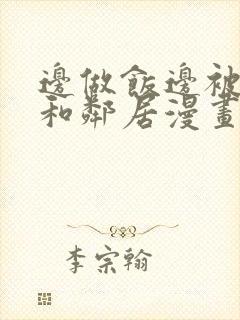 邊做飯邊被
和鄰居漫畫
李宗翰